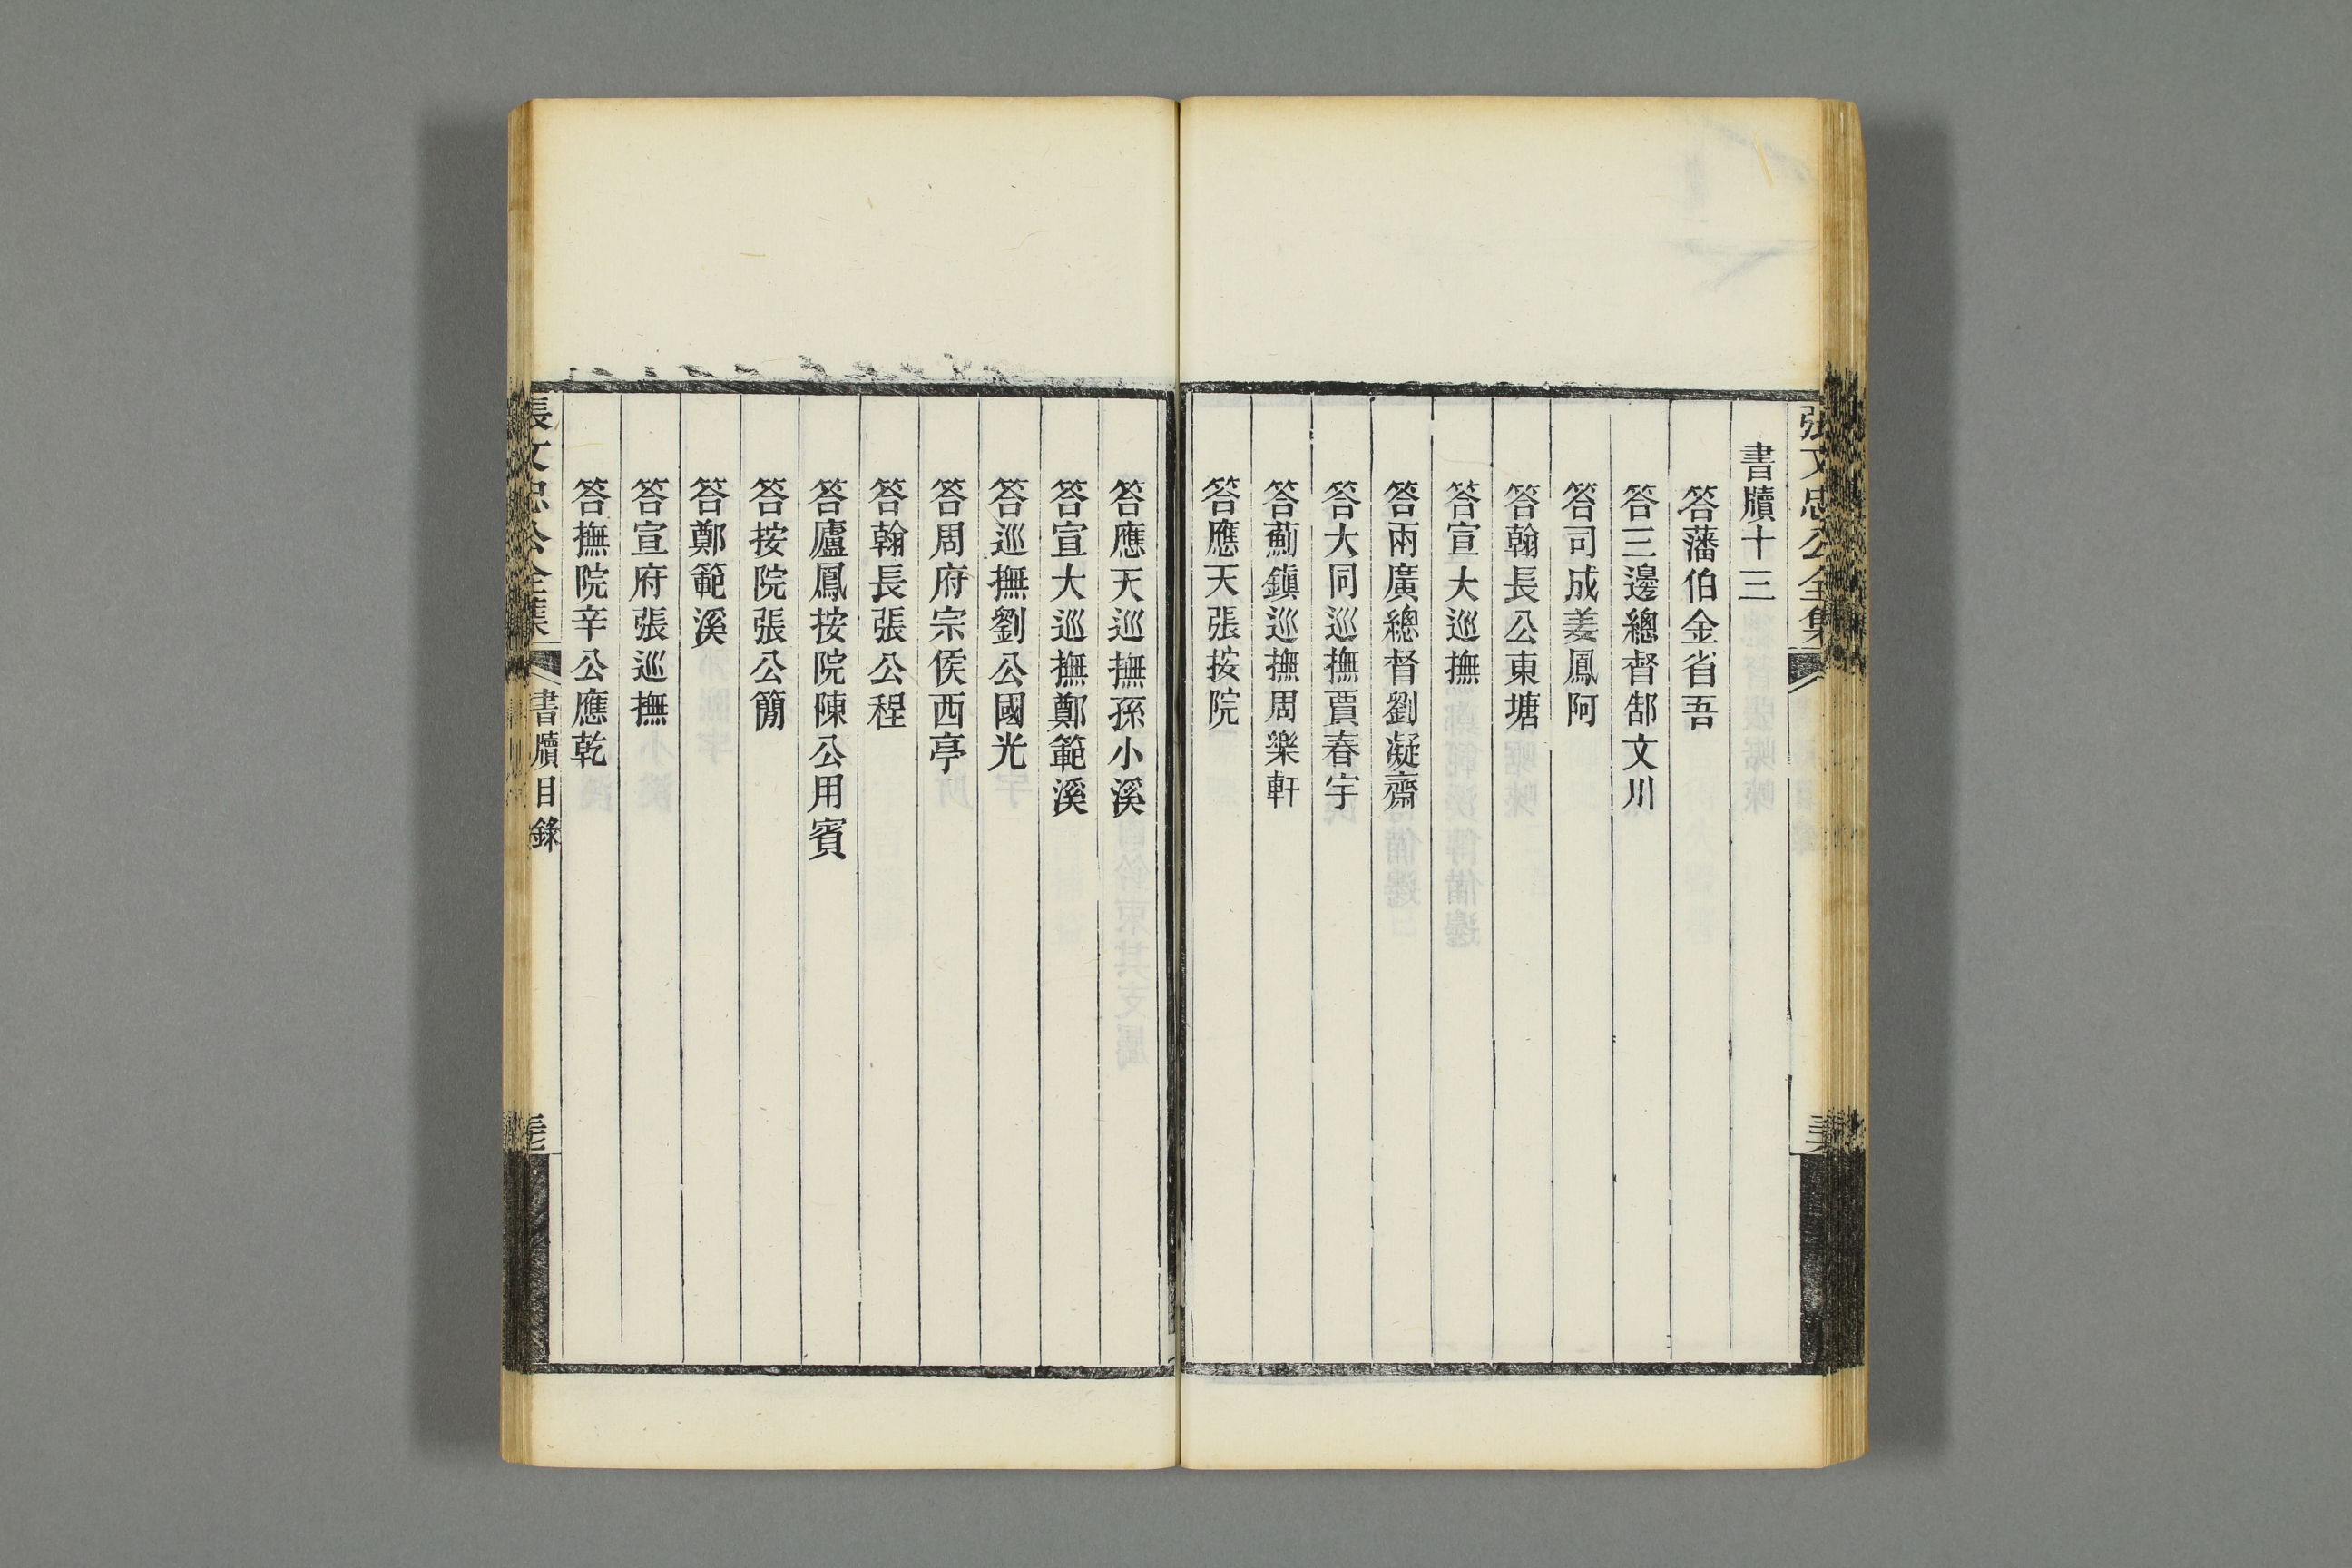 張文忠公全集
書牘十三
答藩伯金省吾
答三邊總督郜文川
答司成姜鳳阿
答翰長公東塘
答宣大巡撫
答兩廣總督劉凝齋
答大同巡撫賈春宇
答薊鎮巡撫周樂軒
答應天張按院
答應天巡撫孫小溪
答宣大巡撫鄭範溪
答巡撫劉公國光
答周府宗侯西亭
答翰長張公程
答廬鳳按院陳公用賓
答按院張公簡
答鄭範溪
答宣府張巡撫
答撫院辛公應乾
張文忠公全集
書牘目錄